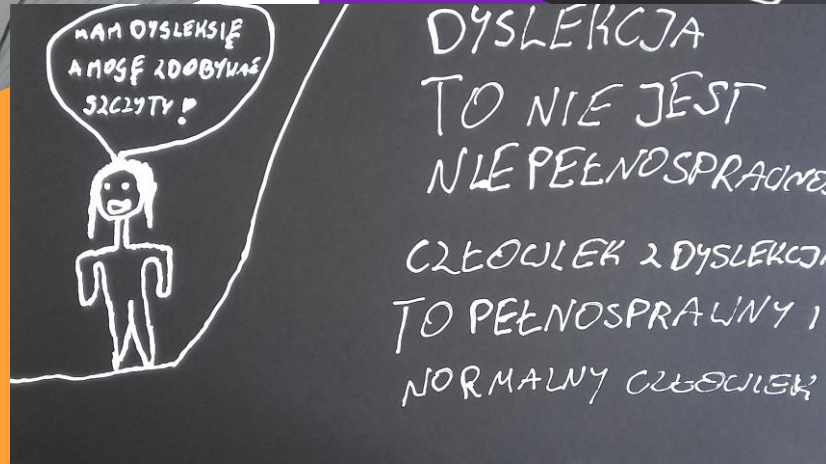 MAM DYSLEKSIĘ
A MOGĘ ZDOBYWAĆ
SZCZYTY!
DYSLEKCJA
TO NIE JEST
NIEPEŁNOSPRAWNOŚ
CZŁOWIEK Z DYSLEKCJĄ
TO PEŁNOSPRAWNY I
NORMALNY CZŁOWIEK